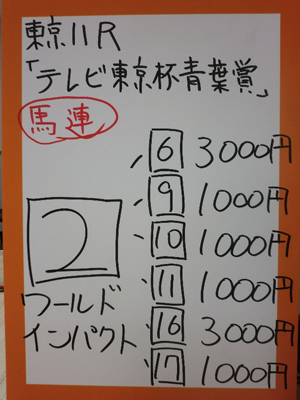 東京11R
「テレビ東京杯青葉賞」
馬連
2
ワールド
インパクト
6 3000円
9 1000円
10 1000円
11 1000円
16 3000円
17 1000円